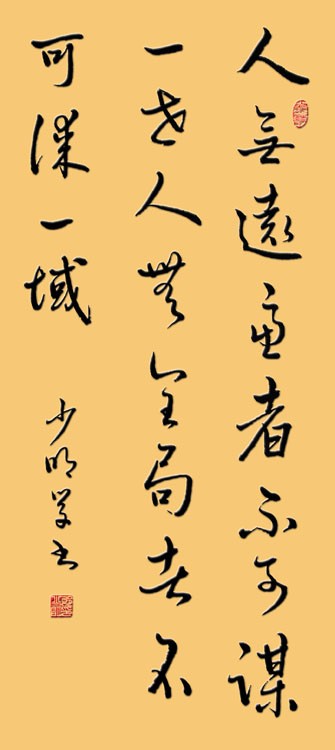 人無遠慮者不可謀
一世人無全局者不
可謀一域
少明学书